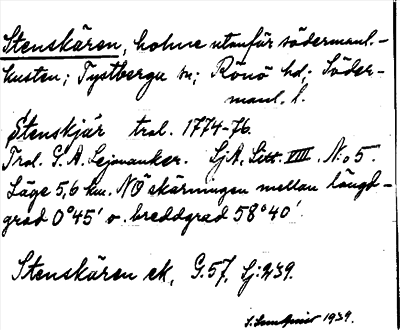 Stenskären, holme utanför södermanl.-
kusten; Tystberga sn; Rönö hd; Söder-
manl. l.
Stenskjär trol. 1774-76.
Trol. G. A. Lejonanker. SjA, Litt. VIII. N:o 5.
Läge 5,6 km. NÖ skärningen mellan längd-
grad 0°45' o. breddgrad 58°40'.
Stenskären ek, G.57, Sj:
1939.